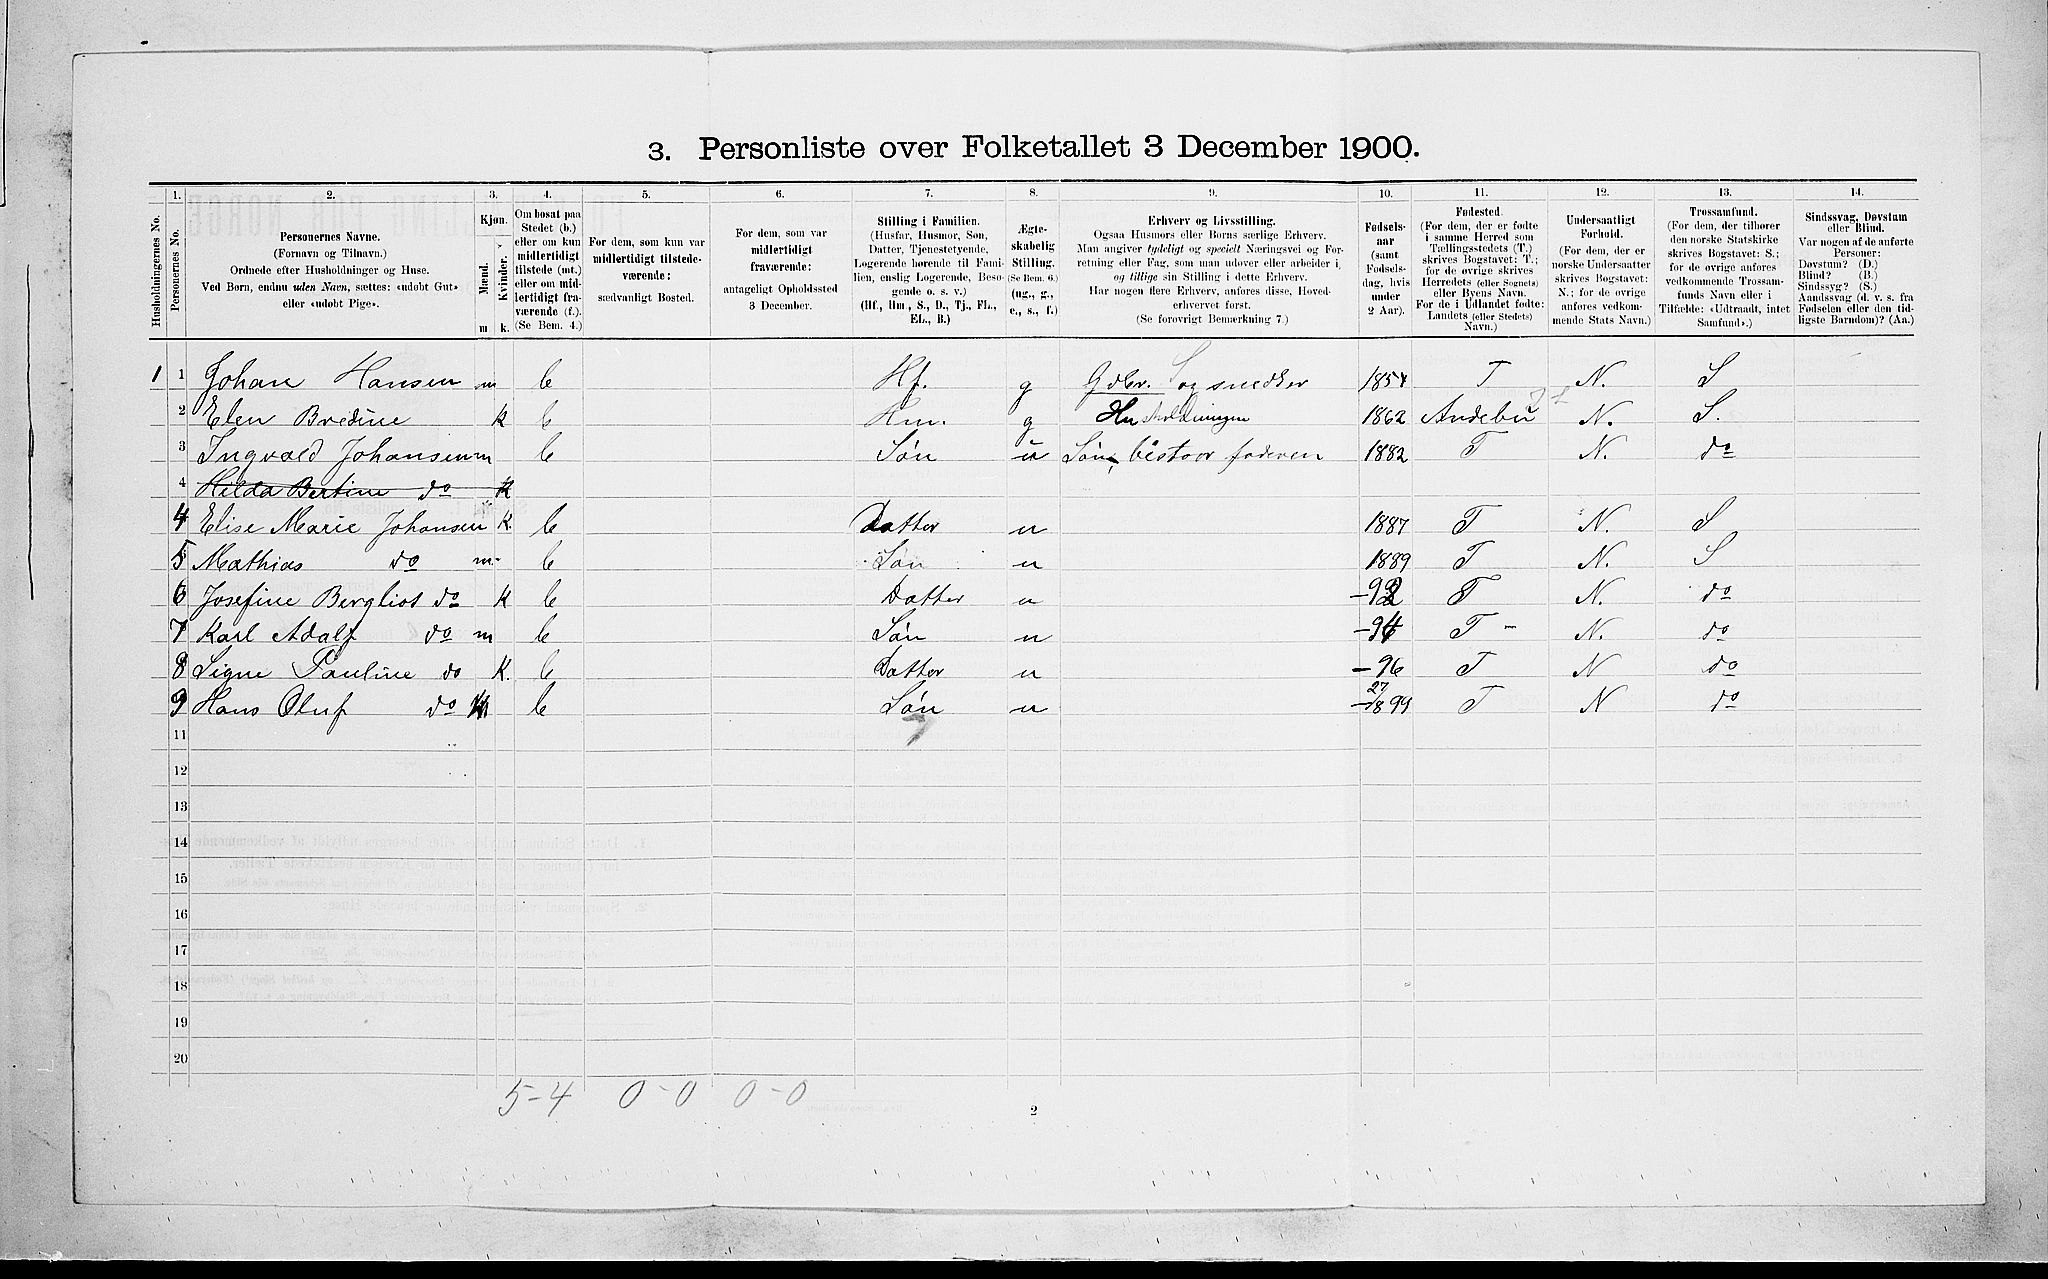 3. Personliste over Folketallet 3 December 1900.
1. 2. 3. 4. 5. 6. 7. 8. 9. 10. 11. 12. 13. 14.
Husholdningernes No.
Personernes No.
Personernes Navne.
(Fornavn og Tilnavn.)
Ordnede efter Husholdninger og Huse.
Ved Børn, endnu uden Navn, sættes: «udøbt Gut»
eller «udøbt Pige».
Kjøn.
Mænd.
Kvinder.
m k.
Om bosat paa
Stedet (b.)
eller om kun
midlertidigt
tilstede (mt.)
eller om mid-
lertidigt fra-
værende (f.).
(Se Bem. 4.)
For dem, som kun var
midlertidigt tilstede-
værende:
sædvanligt Bosted.
For dem, som var
midlertidigt
fraværende:
antageligt Opholdssted
3 December.
Stilling i Familien.
(Husfar, Husmor, Søn,
Datter, Tjenestetyende,
Logerende hørende til Fami-
lien, enslig Logerende, Besø-
gende o. s. v.)
(Hf., Hm., S., D., Tj., FL.,
EL., B.)
Ægte-
skabelig
Stilling.
(Se Bem. 6.)
(ug., g.,
e., s., f.)
Erhverv og Livsstilling.
Ogsaa Husmors eller Børns særlige Erhverv.
Man angiver tydeligt og specielt Næringsvei og For-
retning eller Fag, som man udøver eller arbeider i,
og tillige sin Stilling i dette Erhverv.
Har nogen flere Erhverv, anføres disse, Hoved-
erhvervet først.
(Se forøvrigt Bemærkning 7.)
Fødsels-
aar
(samt
Fødsels-
dag, hvis
under
2 Aar).
Fødested.
(For dem, der er fødte
i samme Herred som
Tællingsstedets (T.)
skrives Bogstavet: T.;
for de øvrige skrives
Herredets (eller Sognets)
eller Byens Navn.
For de i Udlandet fødte:
Landets (eller Stedets)
Navn.)
Undersaatligt
Forhold.
(For dem, der er
norske Undersaatter
skrives Bogstavet:
N.; for de øvrige
anføres vedkom-
mende Stats Navn.)
Trossamfund.
(For dem, der tilhører
den norske Statskirke
skrives Bogstavet: S.;
for de øvrige anføres
vedkommende Trossam-
funds Navn eller i
Tilfælde: «Udtraadt, intet
Samfund».)
Sindssvag, Døvstum
eller Blind.
Var nogen af de anførte
Personer:
Døvstum? (D.)
Blind? (B.)
Sindssyg? (S.)
Aandssvag (d. v. s. fra
Fødselen eller den tid-
ligste Barndom)? (Aa.)
1 1 Johan Hansen m b Hf. g Gdbr. S og snedker T N. S
2 Elen Bredine k b Hm. g Husholdningen 1862 Andebu N. S.
3 Ingvald Johansen m b Søn u Søn, bistaar faderen 1882 T N. do
4 Hilda Bertine do k
4 Elise Marie Johansen k. b Datter u 1887 T N. S
5 Mathias do m. b Søn u 1889 T N. S
6 Josefine Bergliot do k b Datter u T N. do
7 Karl Adolf do m b Søn u T N. do
8 Signe Pauline do k. b Datter u -96 T N do
9 Hans Oluf do b Søn u T N do
11
12
13
14
15
16
17
18
19
20
5-4 0-0 0-0
2